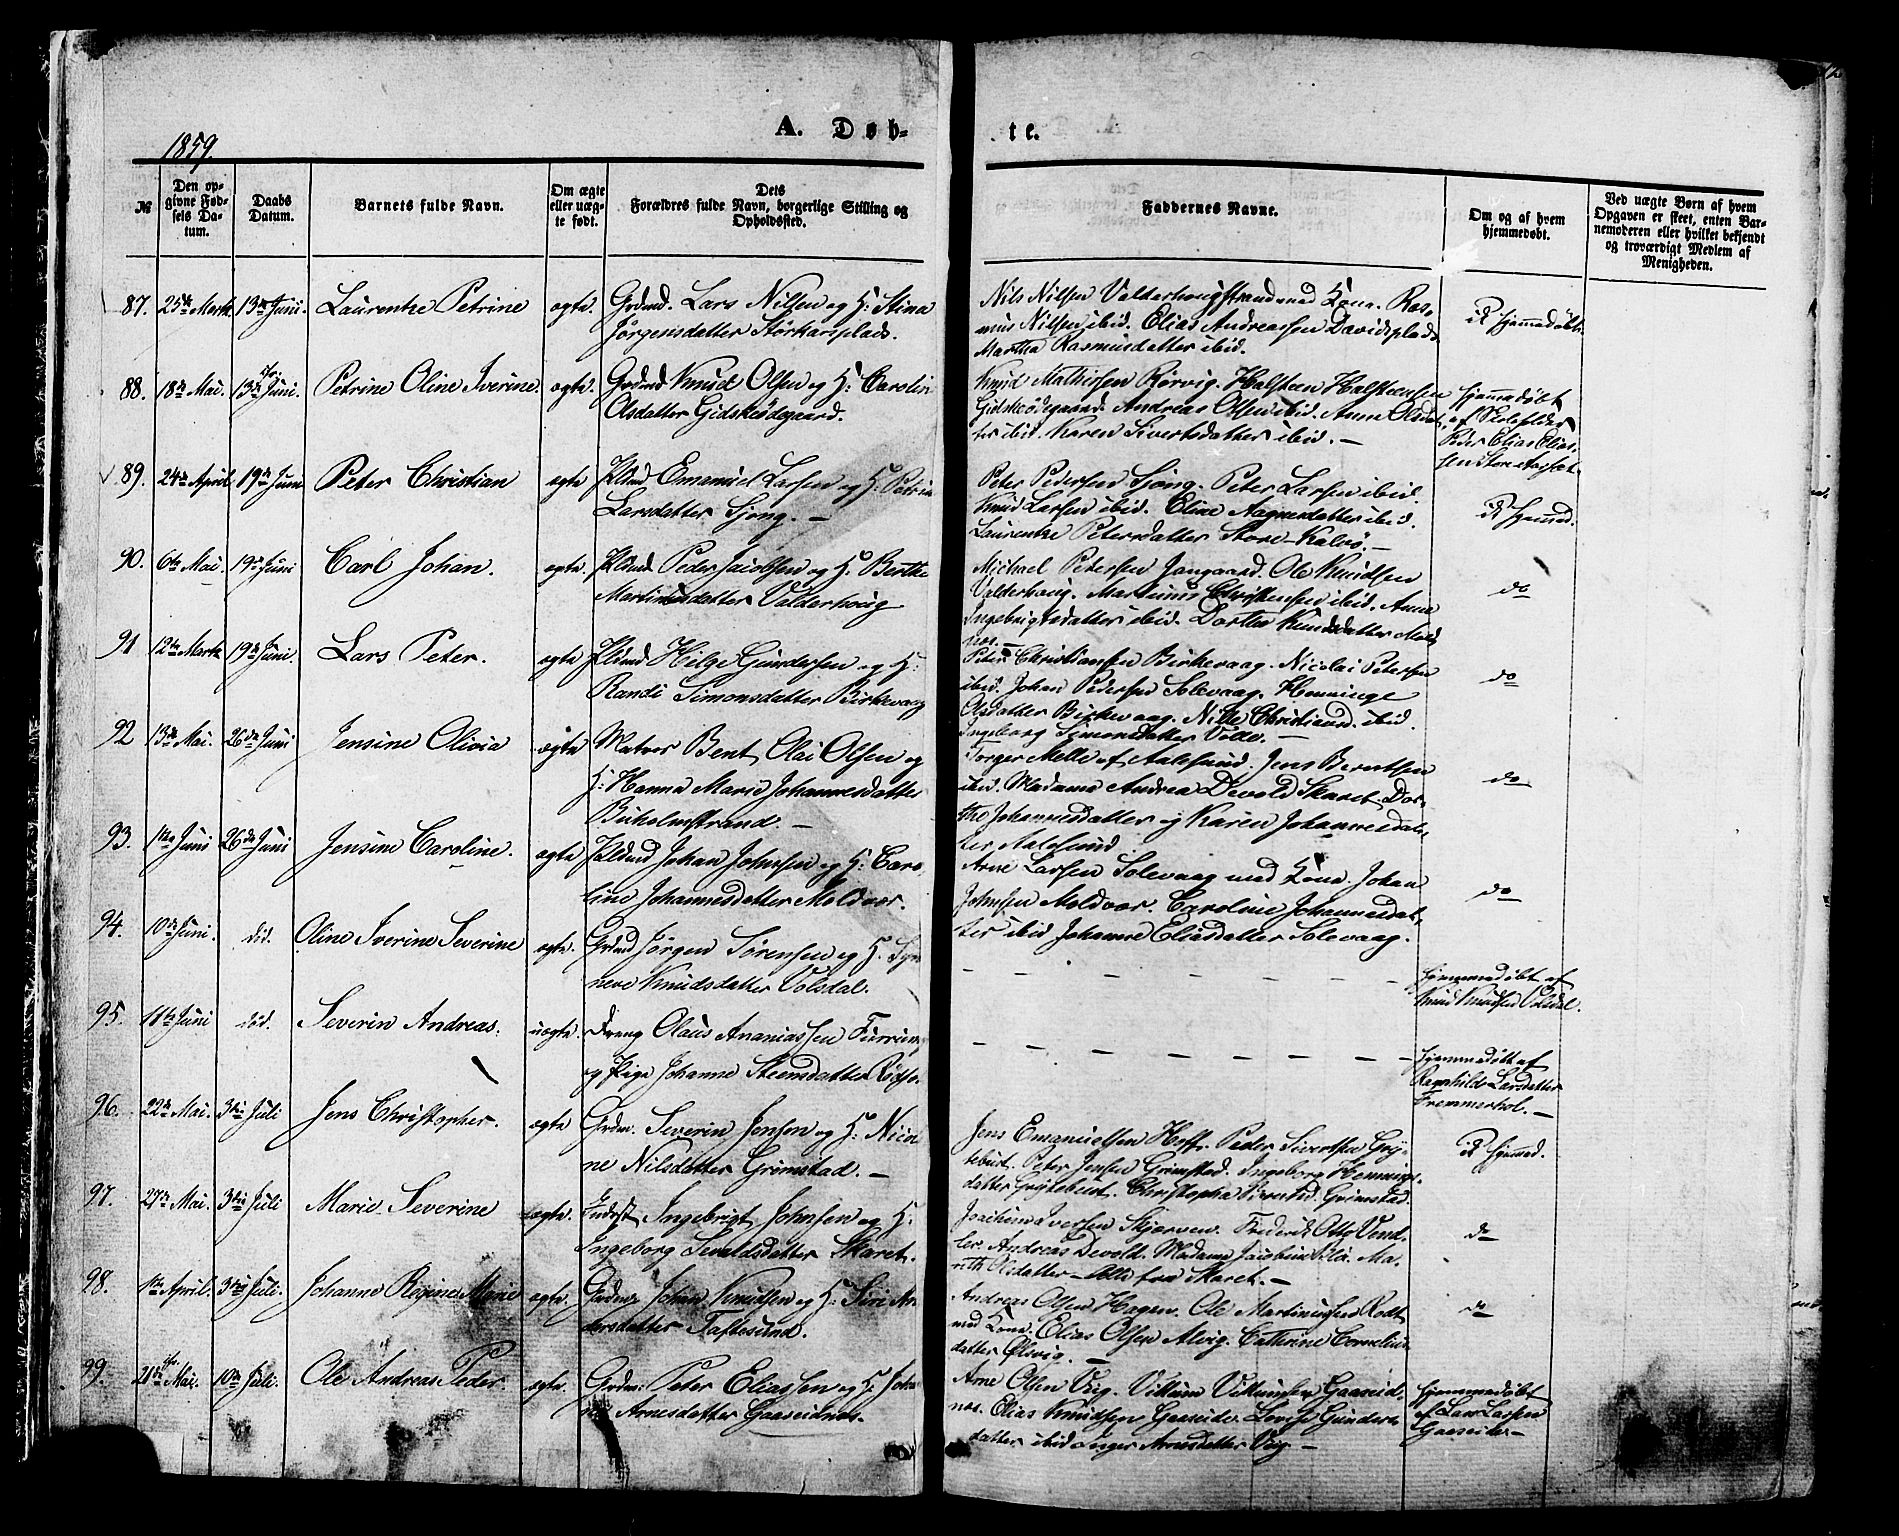 12
1859.
A. Døb-
te.
№
Den op-
givne Fød-
sels Da-
tum.
Daabs
Datum.
Barnets fulde Navn.
Om ægte
eller uæg-
te født.
Dets
Forældres fulde Navn, borgerlige Stilling og
Opholdssted.
Faddernes Navne.
Om og af hvem
hjemmedøbt.
Ved uægte Børn af hvem
Opgaven er skeet, enten Bar-
nemoderen eller hvilket bekjendt
og troværdigt Medlem af
Menigheden.
87. 25de Marts 13de Juni. Laurentze Petrine ægte. Grdmd. Lars Nilsen og H: Stina
Jörgensdatter Störkarsplads.
Nils Nilsen Valderhougstrand med Kone. Ras-
mus Nilsen ibid. Elias Andreassen Davidsplads
Martha Rasmusdatter ibid.
ik hjemmedöbt.
88. 18de Mai. 13de Juni. Petrine Oline Iverine. ægte. Grdmd Knud Olsen og H: Carolin
Olsdatter Gidskeödegaard.
Knud Mathissen Rörvig. Halsteen Halsteensen
Gidskeödegaard. Andreas Olsen ibid. Anne Olsdat-
ter ibid. Karen Sivertsdatter ibid. —
hjemmedöbt
af Skoleholder
Peder Elias Elias-
sen Store
89. 24de April 19de Juni Peter Christian ægte Plsmd Emanuel Larsen og H: Petrin
Larsdatter Sjong. —
Peter Pedersen Sjong. Peter Larsen ibid.
Knud Larsen ibid. Eline Aagesdatter ibid.
Laurentze Petersdatter Store-Kalvö. —
ik hjemmed.
90. 6te Mai. 19de Juni Carl Johan. ægte. Plsmd Peder Jacobsen og H. Berthe
Martinusdatter Valderhoug
Michael Petersen Jangaard. Ole Knudsen
Valderhoug. Martinus Christensen ibid. Anne
Ingebrigtsdatter ibid. Dorthe Knudsdatter Mold-
nes. —
do
91 12te Marts 19de Juni. Lars Peter. ægte Plsmd Helge Gundersen og H:
Randi Simonsdatter Birkevaag
Peter Christiansen Birkevaag. Nicolai Petersen
ibid. Johan Pedersen Solevaag. Henninge
Olsdatter Birkevaag. Nille Christiansd. ibid.
Ingeborg Simonsdatter Velle. —
do
92 13de Mai. 26de Juni Jensine Olivia ægte Matros Bent Olai Olsen og
H: Hanna Marie Johannesdatter
Buholmstrand. —
Torger Melle af Aalesund. Jens Berntsen
ibid. Madame Andrea Devold Skaret. Dor-
the Johannesdatter og Karen Johannesdat-
ter Aalesund
do
93. 1ste Juni 26de Juni Jensine Caroline. ægte Plsmd Johan Johnsen og H: Caro
line Johannesdatter Moldvær.
Arne Larsen Solevaag med Kone. Johan
Johnsen Moldvær. Caroline Johannesdat-
ter ibid Johanne Eliasdatter Solevaag.
do
94. 10de Juni. död. Oline Iverine Severine ægte. Grdmd Jörgen Sörensen og H. Syn
neve Knudsdatter Volsdal.
— — — — — — —
hjemmedöbt af
Knud Knudsen Volsdal.
95. 11te Juni död. Severin Andreas. uægte. Dreng Olaus Ananiassen
og Pige Johanne Steensdatter
— — — — — — —
hjemmedöbt af
Ragnhilde Larsdatter
Fremmerhol. —
96. 22de Mai. 3die Juli Jens Christopher. ægte Grdm. Severin Jensen og H: Nicol
ne Nilsdatter Grimstad. —
Jens Emanuelsen Hoff. Peder Sivertsen Gry-
tebust. Peter Jensen Grimstad. Ingeborg Hennings-
datter Grytebust. Christopha Grimstad
ik hjemmed.
97. 27de Mai. 3die Juli Marie Severine ægte. Ingebrigt Johnsen og H.
Ingeborg Sevaldsdatter Skaret.
Joachim Iversen Frederik Otto
Andreas Devold. Madame Ma-
Olsdatter — alle fra Skaret. —
do
98. 1ste April. 3die Juli. Johanne Regine Marie ægte. Grdm. Johan Knudsen og H: Siri An
dersdatter Taftesund.
Andreas Olsen Hagen. Ole Martinussen
med Kone. Elias Olsen Alvig. Cathrine Cornelius-
datter
do
99. 21de Mai. 10de Juli. Ole Andreas Peder. ægte. Grdm: Peter Eliassen og H: Joha
ne Arnesdatter Gaaseidnes.
Arne Olsen Vig. Gaaseid-
nes. Elias Knudsen Gaaseide. Lovise Gunders-
datter ibid Inger Arnesdatter Vig —
hjemmedöbt
af Lars Larsen
Gaaseide. —